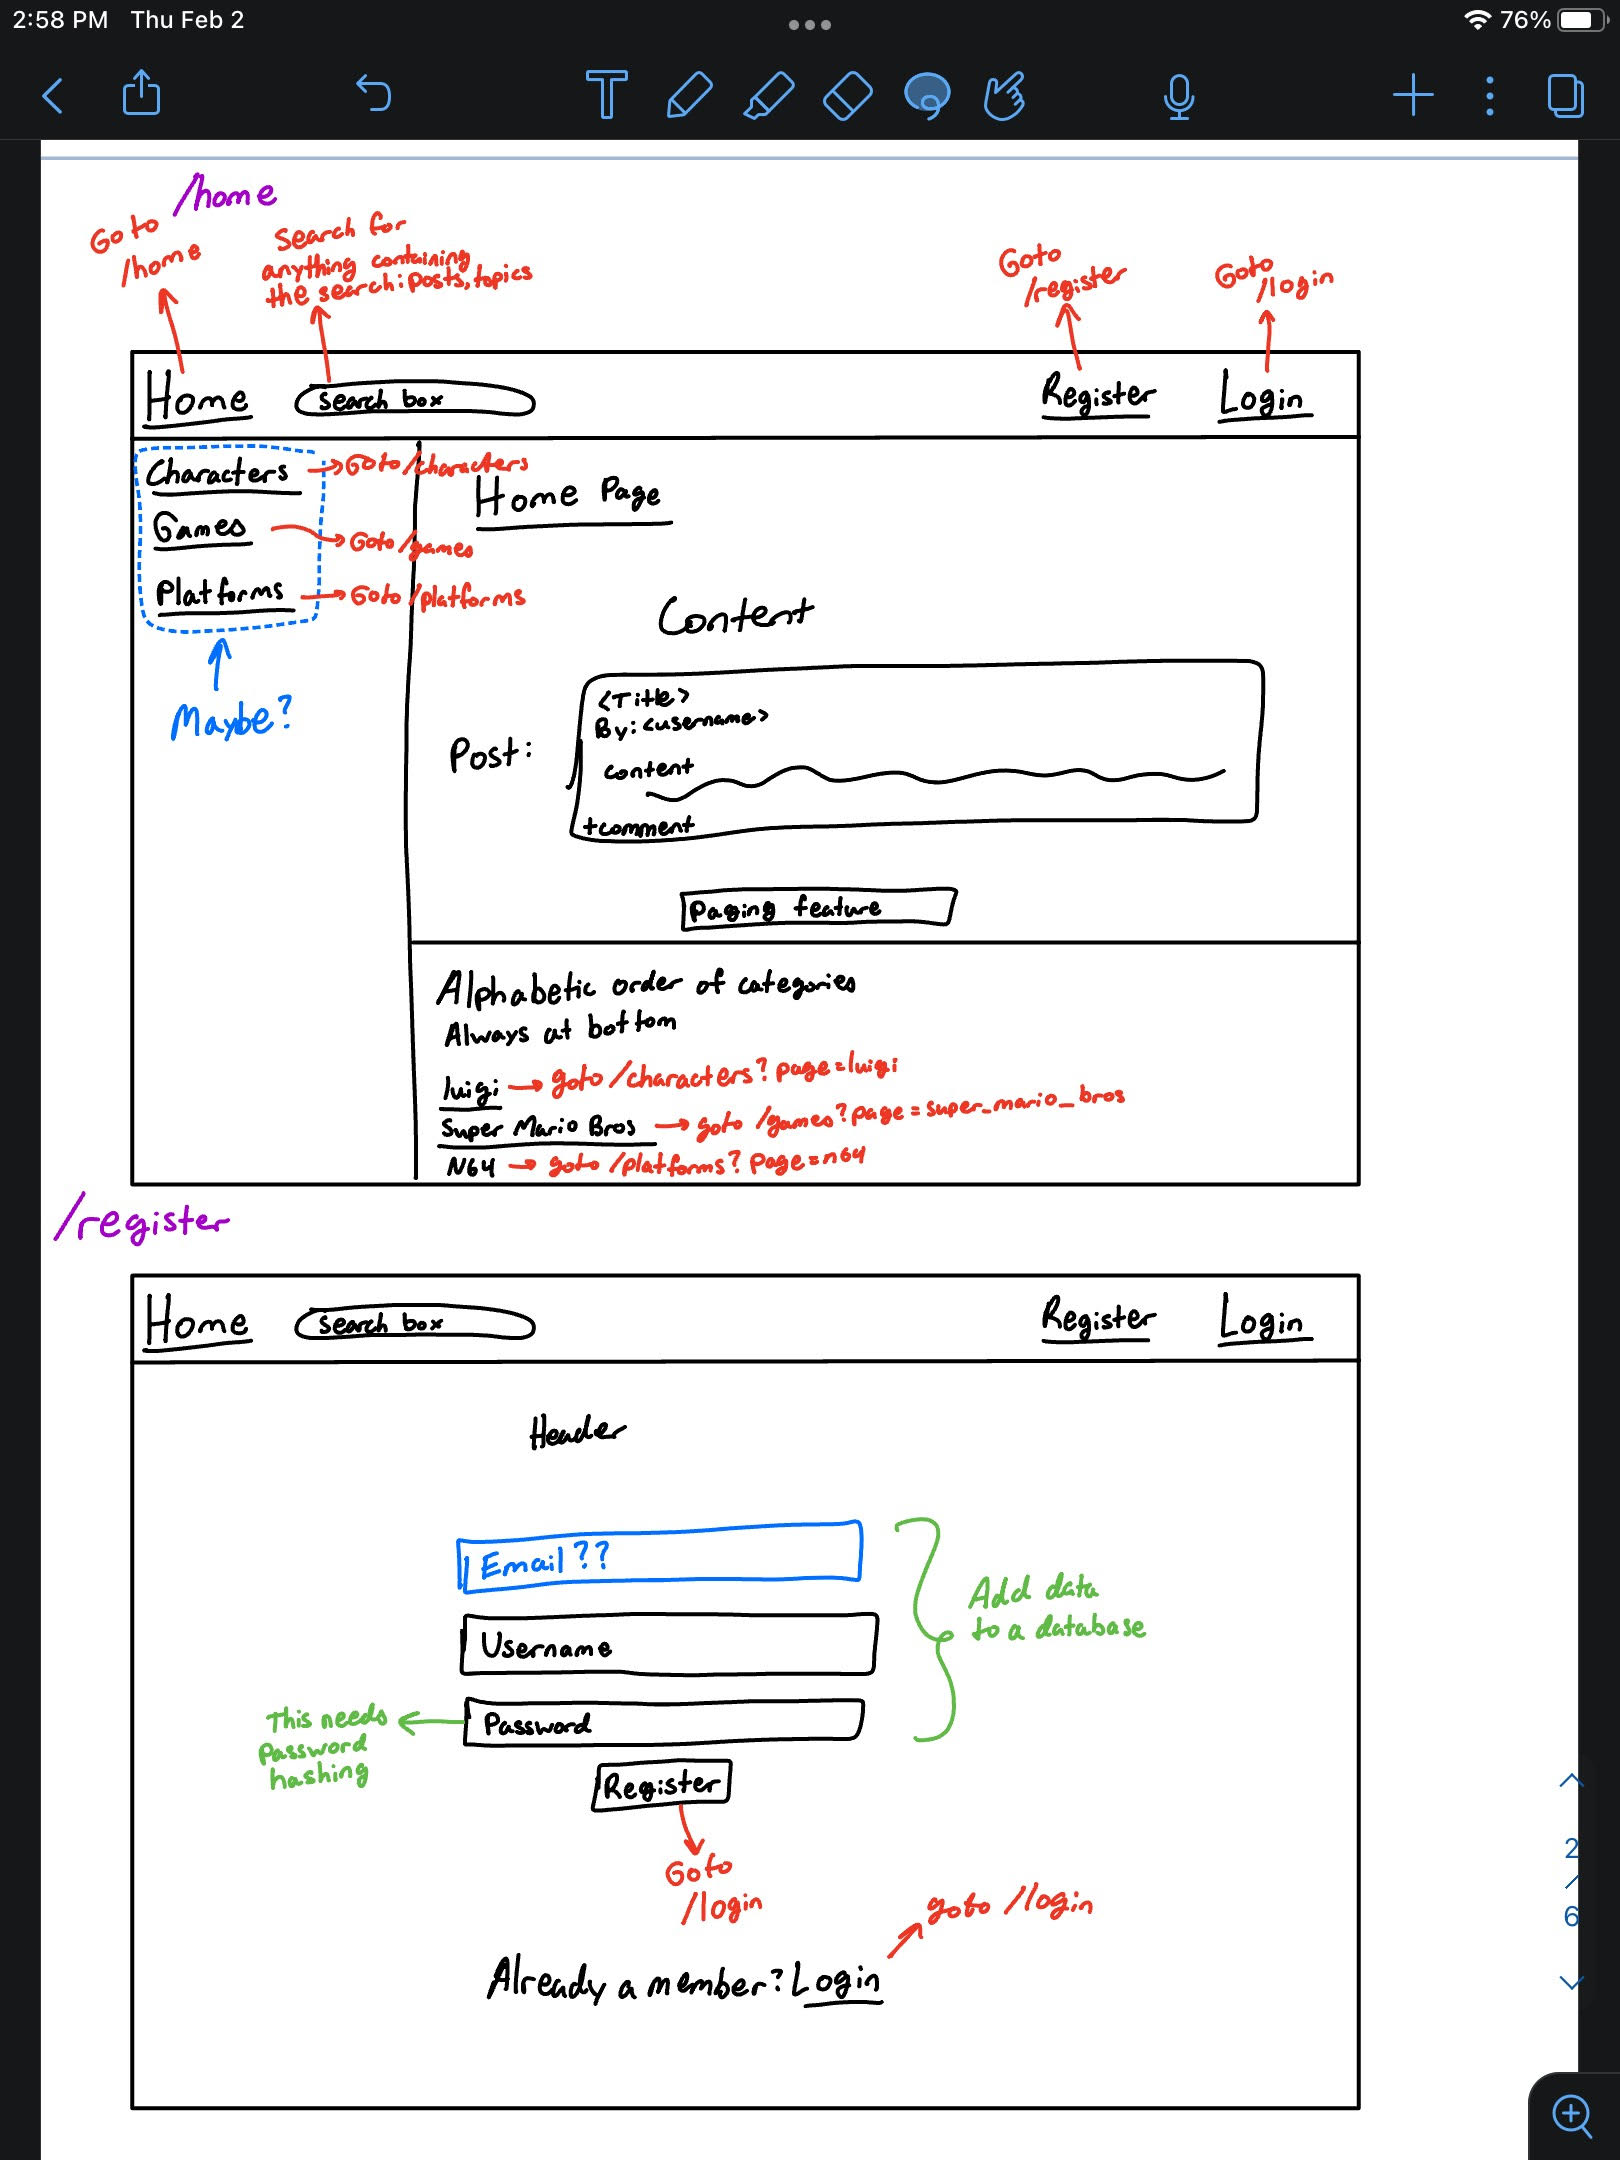 2:58 PM Thu Feb 2
76%
T
/home
Goto
/home
Search for
anything containing
the search: posts, topics
Goto
/register
Goto
/login
Home
search box
Register
Login
Characters
Goto /characters
Home Page
Games
Goto /games
Platforms
Goto /platforms
Maybe?
Content
Post:
<Title>
By: <username>
content
+comment
Paging feature
Alphabetic order of categories
Always at bottom
luigi
goto /characters?page=luigi
Super Mario Bros
goto /games?page=super_mario_bros
N64
goto /platforms?page=n64
/register
Home
search box
Register
Login
Header
Email??
Username
Password
Add data
to a database
This needs
Password
hashing
Register
Goto
/login
goto /login
Already a member? Login
2
/
6